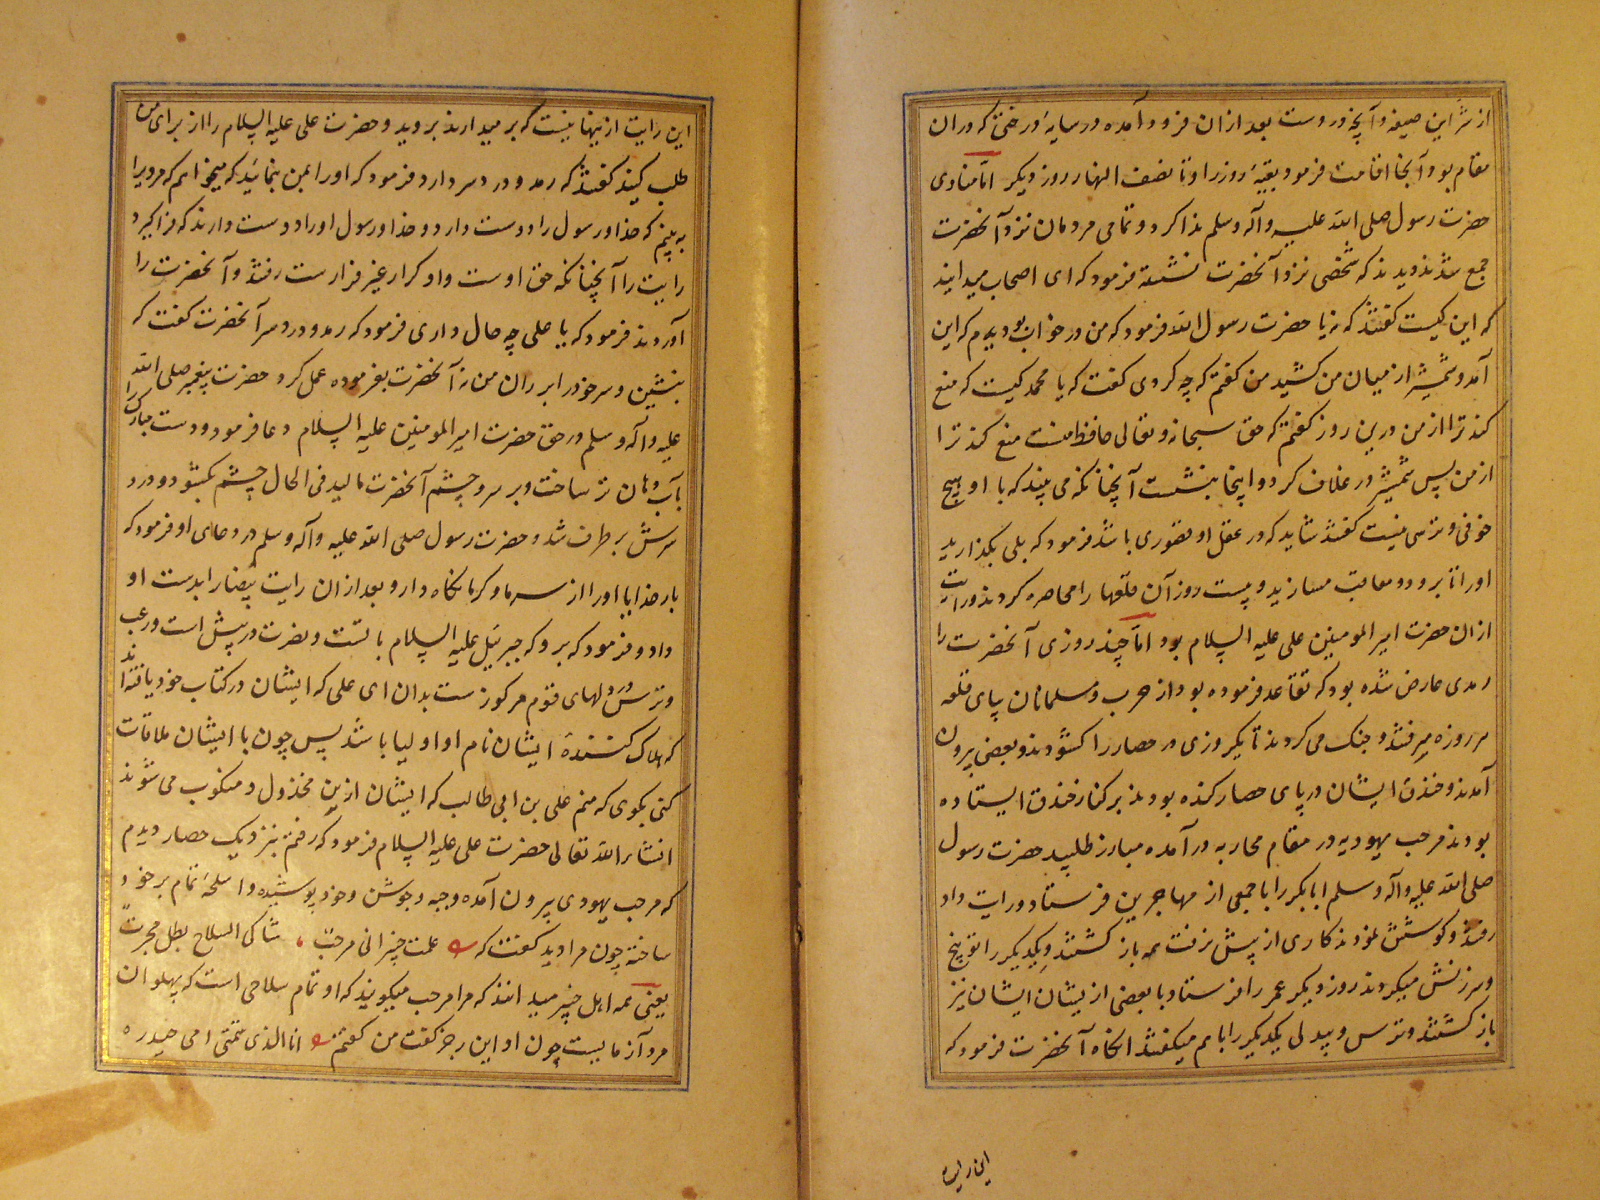 از شر این صیغه و آنچه دروست بعد ازان فرود آمده در سایهٔ درختی که دران
مقام بود آنجا اقامت فرمود بقیهٔ روز را و تا نصف النهار روز دیکر اما منادی
حضرت رسول صلی الله علیه و آله و سلم ندا کرد و تمامی مردمان نزد آنحضرت
جمع شدند دیدند که شخصی نزد آنحضرت نشسته فرمود که ای اصحاب میدانید
که این کیست کفتند که نه یا حضرت رسول الله فرمود که من در خواب بودم که این
آمد و شمشیر از میان من کشید من کفتم که چه کردی کفت که یا محمد کیست که منع
کند ترا از من درین روز کفتم که حق سبحانه و تعالی حافظ منست منع کند ترا
از من پس شمشیر در غلاف کرد و اینجا بنشست آنچنانکه می بیند که با او هیچ
خوفی و ترسی نیست کفتند شاید که در عقل او قصوری باشد فرمود که بلی بکذارید
او را تا برود و معاقب مسازید و بیست روز آن قلعها را محاصره کردند و رایت
ازان حضرت امیر المومنین علی علیه السلام بود اما چند روزی آنحضرت را
رمدی عارض شده بود که تقاعد فرموده بود از حرب و مسلمانان پای قلعه
هر روزه میرفتند و جنک می کردند تا یکروزی در حصار را کشودند و بعضی بیرون
آمدند و خندق ایشان در پای حصار کنده بودند بر کنار خندق ایستاده
بودند مرحب یهودیه در مقام محاربه در آمده مبارز طلبید حضرت رسول
صلی الله علیه و آله و سلم ابابکر را با جمعی از مهاجرین فرستاد و رایت داد
رفتند و کوشش نمودند کاری از پیش نرفت همه باز کشتند و یکدیکر را توبیخ
و سرزنش میکردند روز دیکر عمر را فرستاد با بعضی از لیشان ایشان نیز
باز کشتند و ترس و بیدلی یکدیکر را با هم میکفتند انکاه آنحضرت فرمود که
این رایت
این رایت از ینها نیست که بر میدارند بروید و حضرت علی علیه السلام را از برای من
طلب کنید کفتند که رمد و درد سر دارد فرمود که او را بمن بنمائید که میخواهم که مردیرا
به بینم که خدا و رسول را دوست دارد و خدا و رسول او را دوست دارند که فرا کیرد
رایت را آنچنانکه حق اوست و او کرار غیر فرار ست رفتند و آنحضرت را
آوردند فرمود که یا علی چه حال داری فرمود که رمد و درد سر آنحضرت کفت که
بنشین و سر خود را بر ران من نه آنحضرت بفرموده عمل کرد حضرت پیغمبر صلی الله
علیه و آله و سلم در حق حضرت امیر المومنین علیه السلام دعا فرمود و دست مبارک را
بآب دهان تر ساخت و بر سر و چشم آنحضرت مالید فی الحال چشم بکشود و درد
سرش بر طرف شد و حضرت رسول صلی الله علیه و آله و سلم در دعای او فرمود که
بار خدایا او را از سرما و کرما نکاه دار و بعد ازان رایت بیضا را بدست او
داد و فرمود که برو که جبرئیل علیه السلام با تست و نصرت در پیش است و رعب
و ترس در دلهای قوم مرکوزست بدان ای علی که ایشان در کتاب خود یافته اند
که هلاک کنندهٔ ایشان نام او اولیا باشد پس چون با ایشان ملاقات
کنی بکوی که منم علی بن ابی طالب که ایشان ازین مخذول و منکوب می شوند
انشاء الله تعالی حضرت علی علیه السلام فرمود که رفتم بنزدیک حصار دیدم
که مرحب یهودی بیرون آمده وجبه و جوشن و خود پوشیده و اسلحهٔ تمام بر خود
ساخته چون مرا دید کفت که علمت خیبر انی مرحب شاکی السلاح بطل مجرب
یعنی همه اهل خیبر میدانند که مرا مرحب میکویند که او تمام سلاحی است که پهلوان
مرد آزمایست چون او این رجز کفت من کفتم انا الذی سمتنی امی حیدره